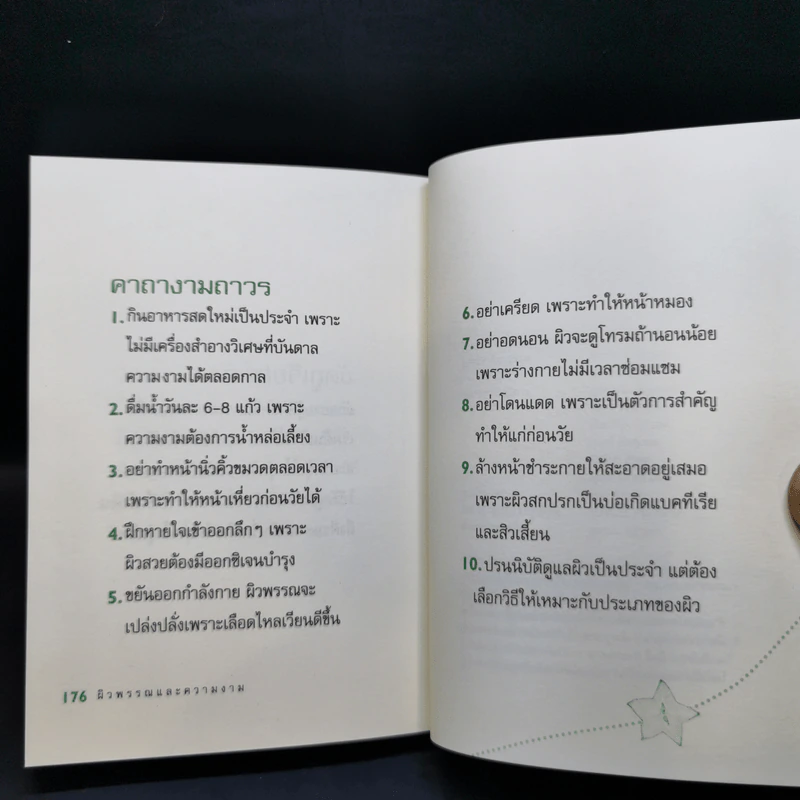 คาถางามถาวร
1. กินอาหารสดใหม่เป็นประจำ เพราะ
ไม่มีเครื่องสำอางวิเศษที่บันดาล
ความงามได้ตลอดกาล
2. ดื่มน้ำวันละ 6-8 แก้ว เพราะ
ความงามต้องการน้ำหล่อเลี้ยง
3. อย่าทำหน้านิ่วคิ้วขมวดตลอดเวลา
เพราะทำให้หน้าเหี่ยวก่อนวัยได้
4. ฝึกหายใจเข้าออกลึกๆ เพราะ
ผิวสวยต้องมีออกซิเจนบำรุง
5. ขยันออกกำลังกาย ผิวพรรณจะ
เปล่งปลั่งเพราะเลือดไหลเวียนดีขึ้น
176 ผิวพรรณและความงาม
6. อย่าเครียด เพราะทำให้หน้าหมอง
7. อย่าอดนอน ผิวจะดูโทรมถ้านอนน้อย
เพราะร่างกายไม่มีเวลาซ่อมแซม
8. อย่าโดนแดด เพราะเป็นตัวการสำคัญ
ทำให้แก่ก่อนวัย
9. ล้างหน้าชำระกายให้สะอาดอยู่เสมอ
เพราะผิวสกปรกเป็นบ่อเกิดแบคทีเรีย
และสิวเสี้ยน
10. ปรนนิบัติดูแลผิวเป็นประจำ แต่ต้อง
เลือกวิธีให้เหมาะกับประเภทของผิว